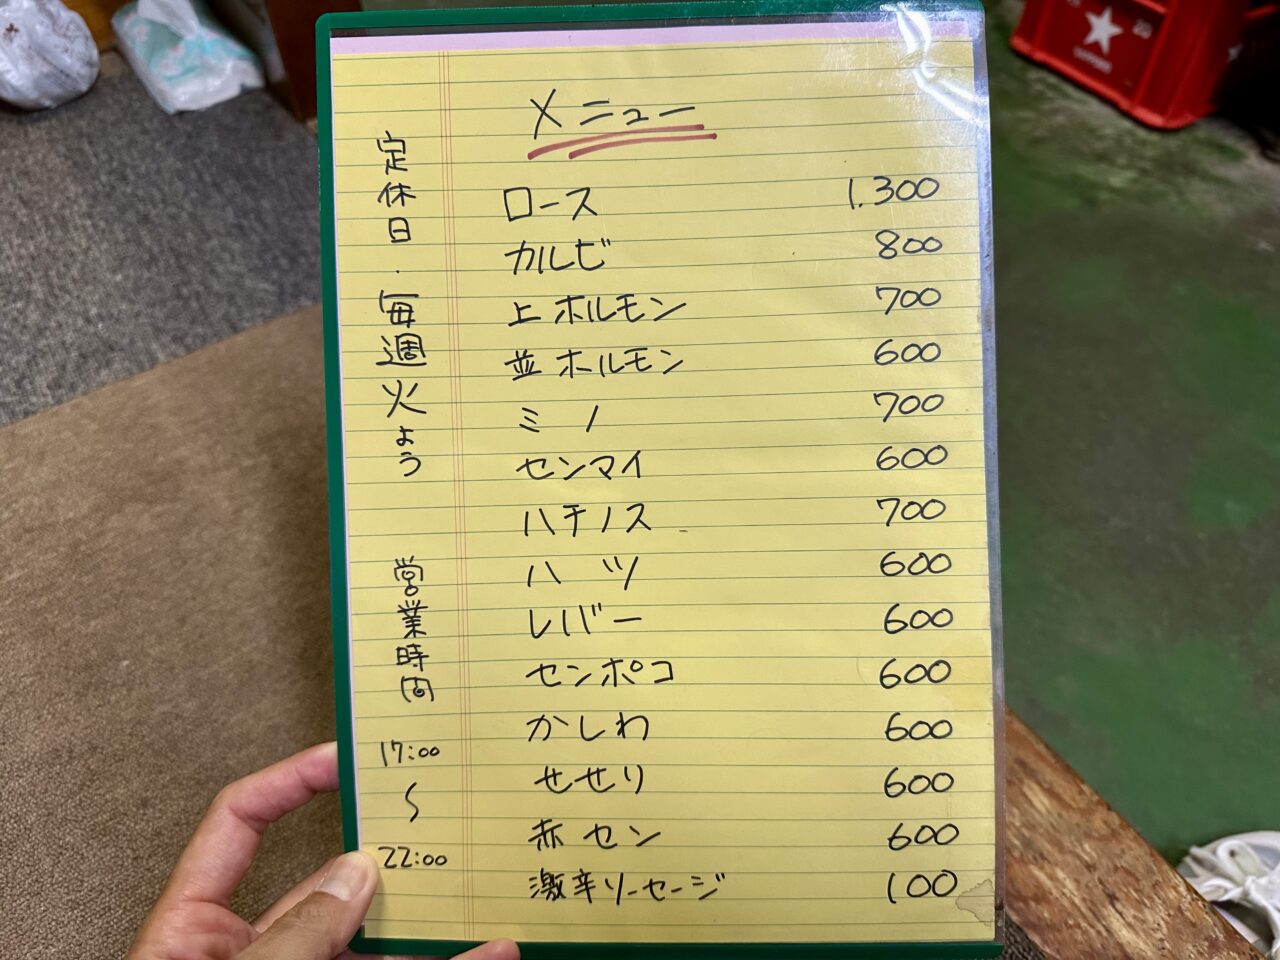 メニュー
ロース 1.300
カルビ 800
上ホルモン 700
並ホルモン 600
ミノ 700
センマイ 600
ハチノス 700
ハツ 600
レバー 600
センポコ 600
かしわ 600
せせり 600
赤セン 600
激辛ソーセージ 100
定休日.毎週火よう
営業時間
17:00
〜
22:00
20